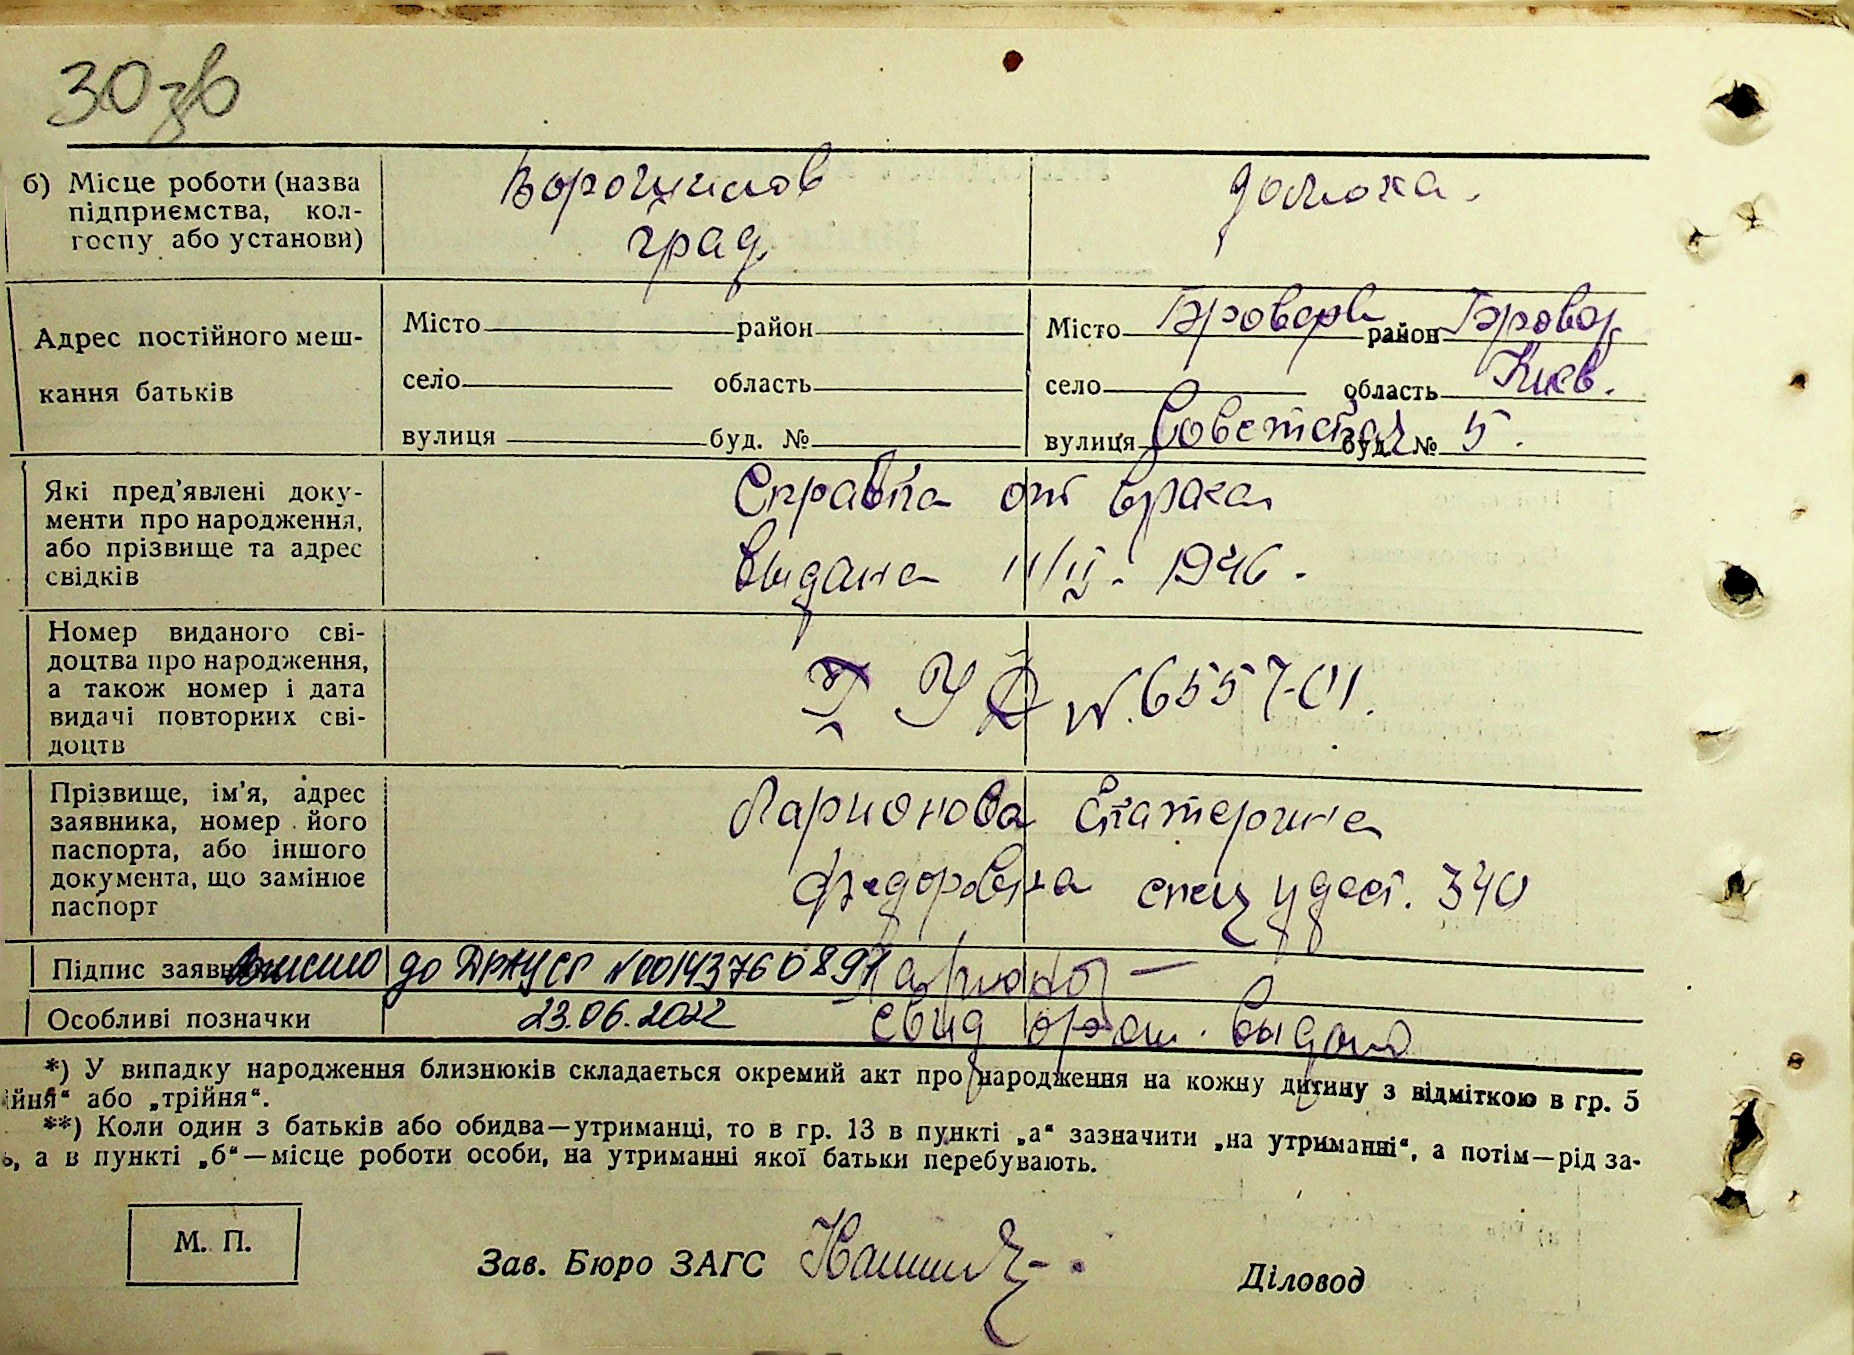 30 зв
б) Місце роботи (назва
підприємства, кол-
госпу або установи)
Ворошилов
град
домохоз.
Адрес постійного меш-
кання батьків
Місто район
село область
вулиця буд. №
Місто Бровары район Бровар.
село область Киев.
вулиця Советская буд. № 5.
Які пред'явлені доку-
менти про народження,
або прізвище та адрес
свідків
Справка от врача
выдана 11/II. 1946.
Номер виданого сві-
доцтва про народження,
а також номер і дата
видачі повторних сві-
доцтв
УФ N. 655701.
Прізвище, ім'я, адрес
заявника, номер його
паспорта, або іншого
документа, що замінює
паспорт
Ларионова Екатерина
Федоровна спец удост. 340
Підпис заявника
Внесено до ДРАЦСГ №00143760897
Ларионов
Особливі позначки
23.06.2022
Свид выдано
*) У випадку народження близнюків складається окремий акт про народження на кожну дитину з відміткою в гр. 5
ійня“ або „трійня“.
**) Коли один з батьків або обидва—утриманці, то в гр. 13 в пункті „а“ зазначити „на утриманні“, а потім—рід за-
ь, а в пункті „б“—місце роботи особи, на утриманні якої батьки перебувають.
М. П.
Зав. Бюро ЗАГС
Діловод